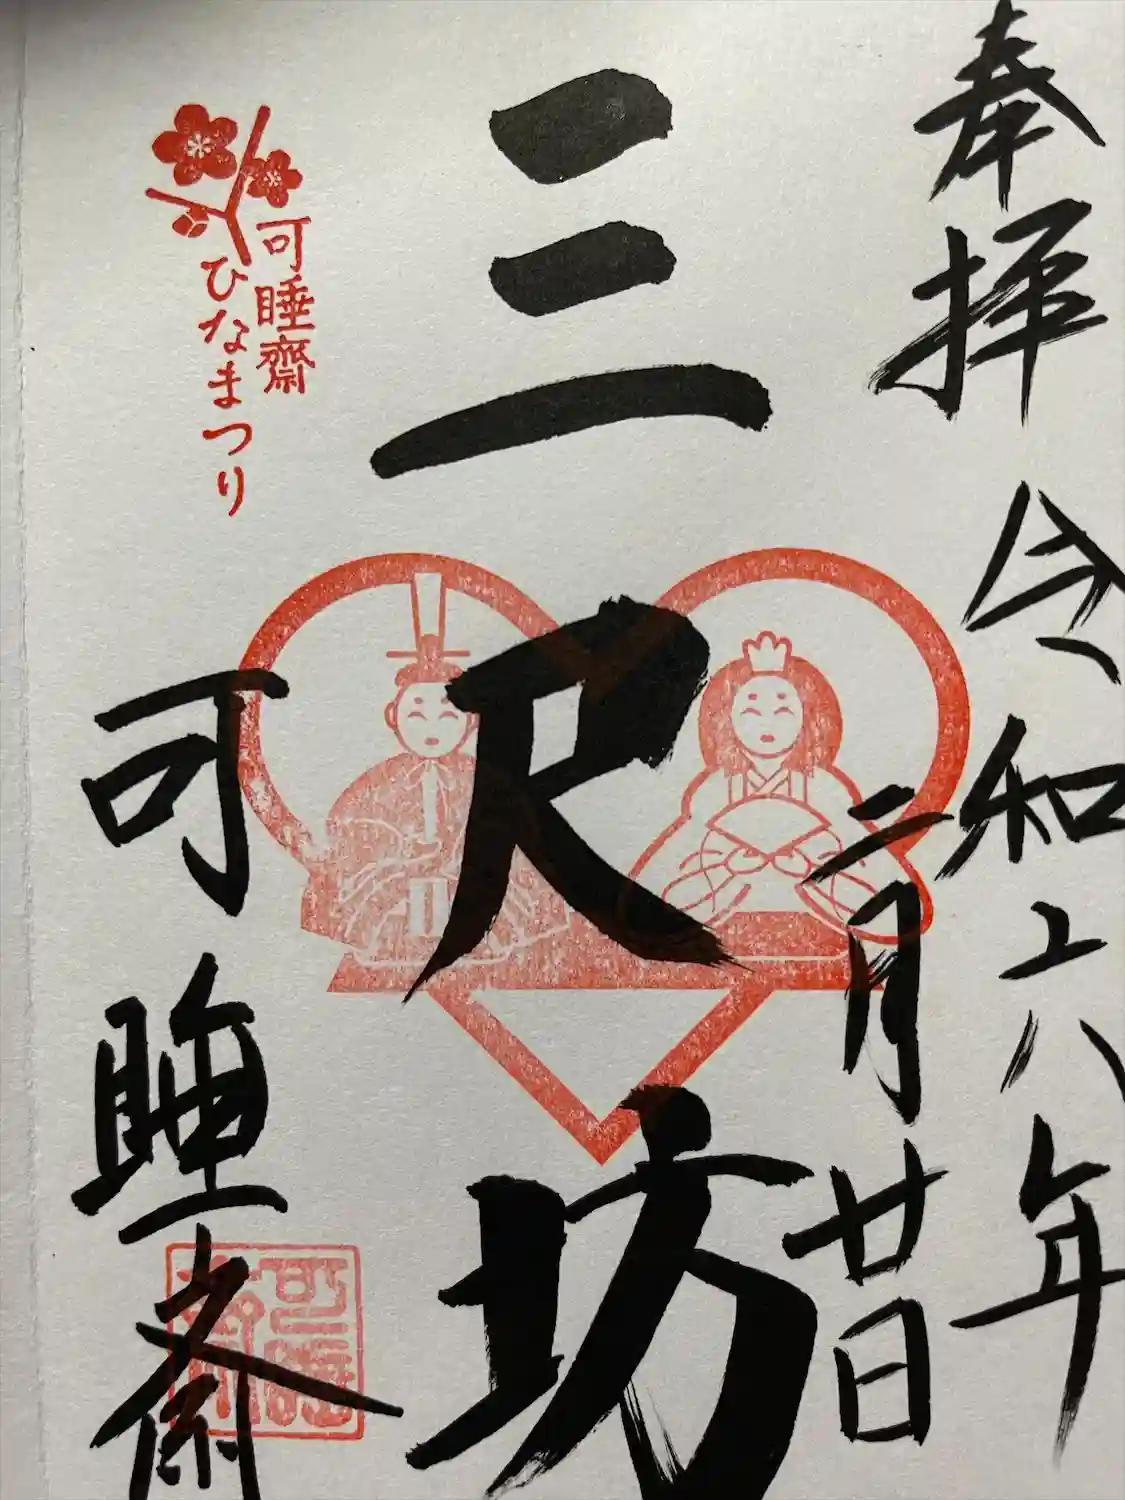 奉拝 令和六年
二月廿日
三尺坊
可睡齋
ひなまつり
可睡斎
可睡齋